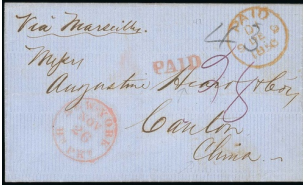 Via Marseilles.
PAID
Messrs
PAID
Augustine Heard & Co.,
Canton
China.
NEW YORK
NOV
26